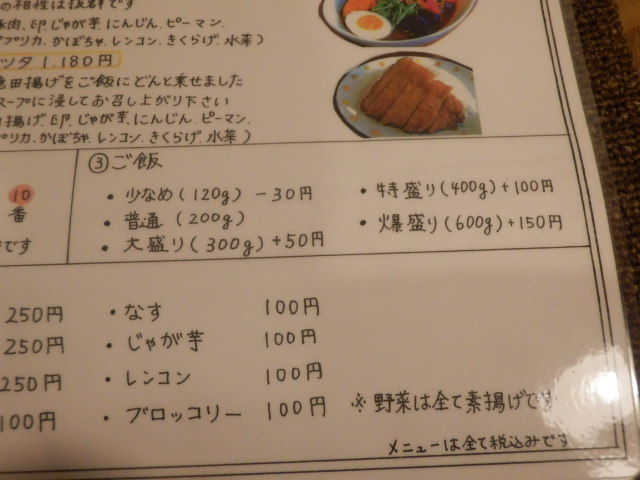 の相性は抜群です
豚肉、卵、じゃが芋、にんじん、ピーマン、
パプリカ、かぼちゃ、レンコン、きくらげ、水菜）
ツタ 1,180円
竜田揚げをご飯にどんと乗せました
スープに浸してお召し上がり下さい
揚げ、卵、じゃが芋、にんじん、ピーマン、
パプリカ、かぼちゃ、レンコン、きくらげ、水菜）
10
番
です
③ご飯
・少なめ（120g）－30円
・普通（200g）
・大盛り（300g）+50円
・特盛り（400g）+100円
・爆盛り（600g）+150円
250円
250円
250円
100円
・なす 100円
・じゃが芋 100円
・レンコン 100円
・ブロッコリー 100円
※野菜は全て素揚げです
メニューは全て税込みです